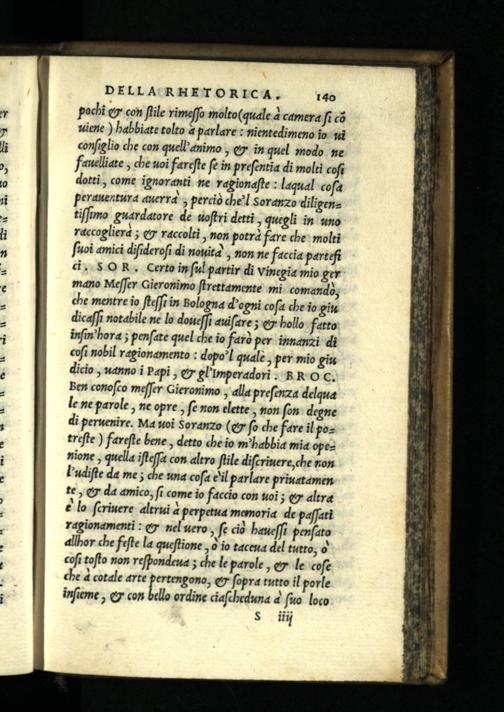 DELLA RHETORICA. 140
pochi & con ſtile rimeſſo molto (quale à camera ſi cõ
uiene) habbiate tolto à parlare: nientedimeno io ui
conſiglio che con quell'animo, & in quel modo ne
fauelliate, che uoi fareſte ſe in preſentia di molti coſi
dotti, come ignoranti ne ragionaſte: laqual coſa
perauentura auerrà, perciò che'l Soranzo diligen-
tiſſimo guardatore de uoſtri detti, quegli in uno
raccoglierà; & raccolti, non potrà fare che molti
ſuoi amici diſideroſi di nouità, non ne faccia partefi
ci. SOR. Certo in ſul partir di Vinegia mio ger
mano Meſſer Gieronimo ſtrettamente mi comandò,
che mentre io ſteſſi in Bologna d'ogni coſa che io giu
dicaſſi notabile ne lo doueſſi auiſare; & hollo fatto
inſin'hora; penſate quel che io farò per innanzi di
coſi nobil ragionamento: dopo'l quale, per mio giu
dicio, uanno i Papi, & gl'Imperadori. BROC.
Ben conoſco meſſer Gieronimo, alla preſenza delqua
le ne parole, ne opre, ſe non elette, non ſon degne
di peruenire. Ma uoi Soranzo (& ſo che fare il po-
treſte) fareſte bene, detto che io m'habbia mia ope-
nione, quella iſteſſa con altro ſtile diſcriuere, che non
l'udiſte da me; che una coſa è il parlare priuatamen
te, & da amico, ſi come io faccio con uoi; & altra
è lo ſcriuere altrui à perpetua memoria de paſſati
ragionamenti: & nel uero, ſe ciò haueſſi penſato
allhor che feſte la queſtione, ò io taceua del tutto, ò
coſi toſto non riſpondeua; che le parole, & le coſe
che à cotale arte pertengono, & ſopra tutto il porle
inſieme, & con bello ordine ciaſcheduna à ſuo loco
S iiij